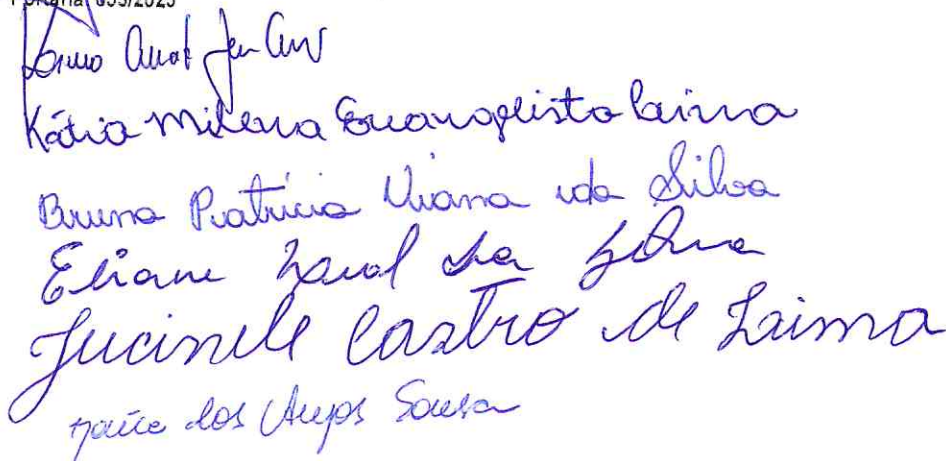 Portaria: 035/2023
Kátia Milena Evangelista Lima
Bruna Patrícia Viana da Silva
Eliane da Silva
Jucinele Castro de Lima
dos Anjos Sousa